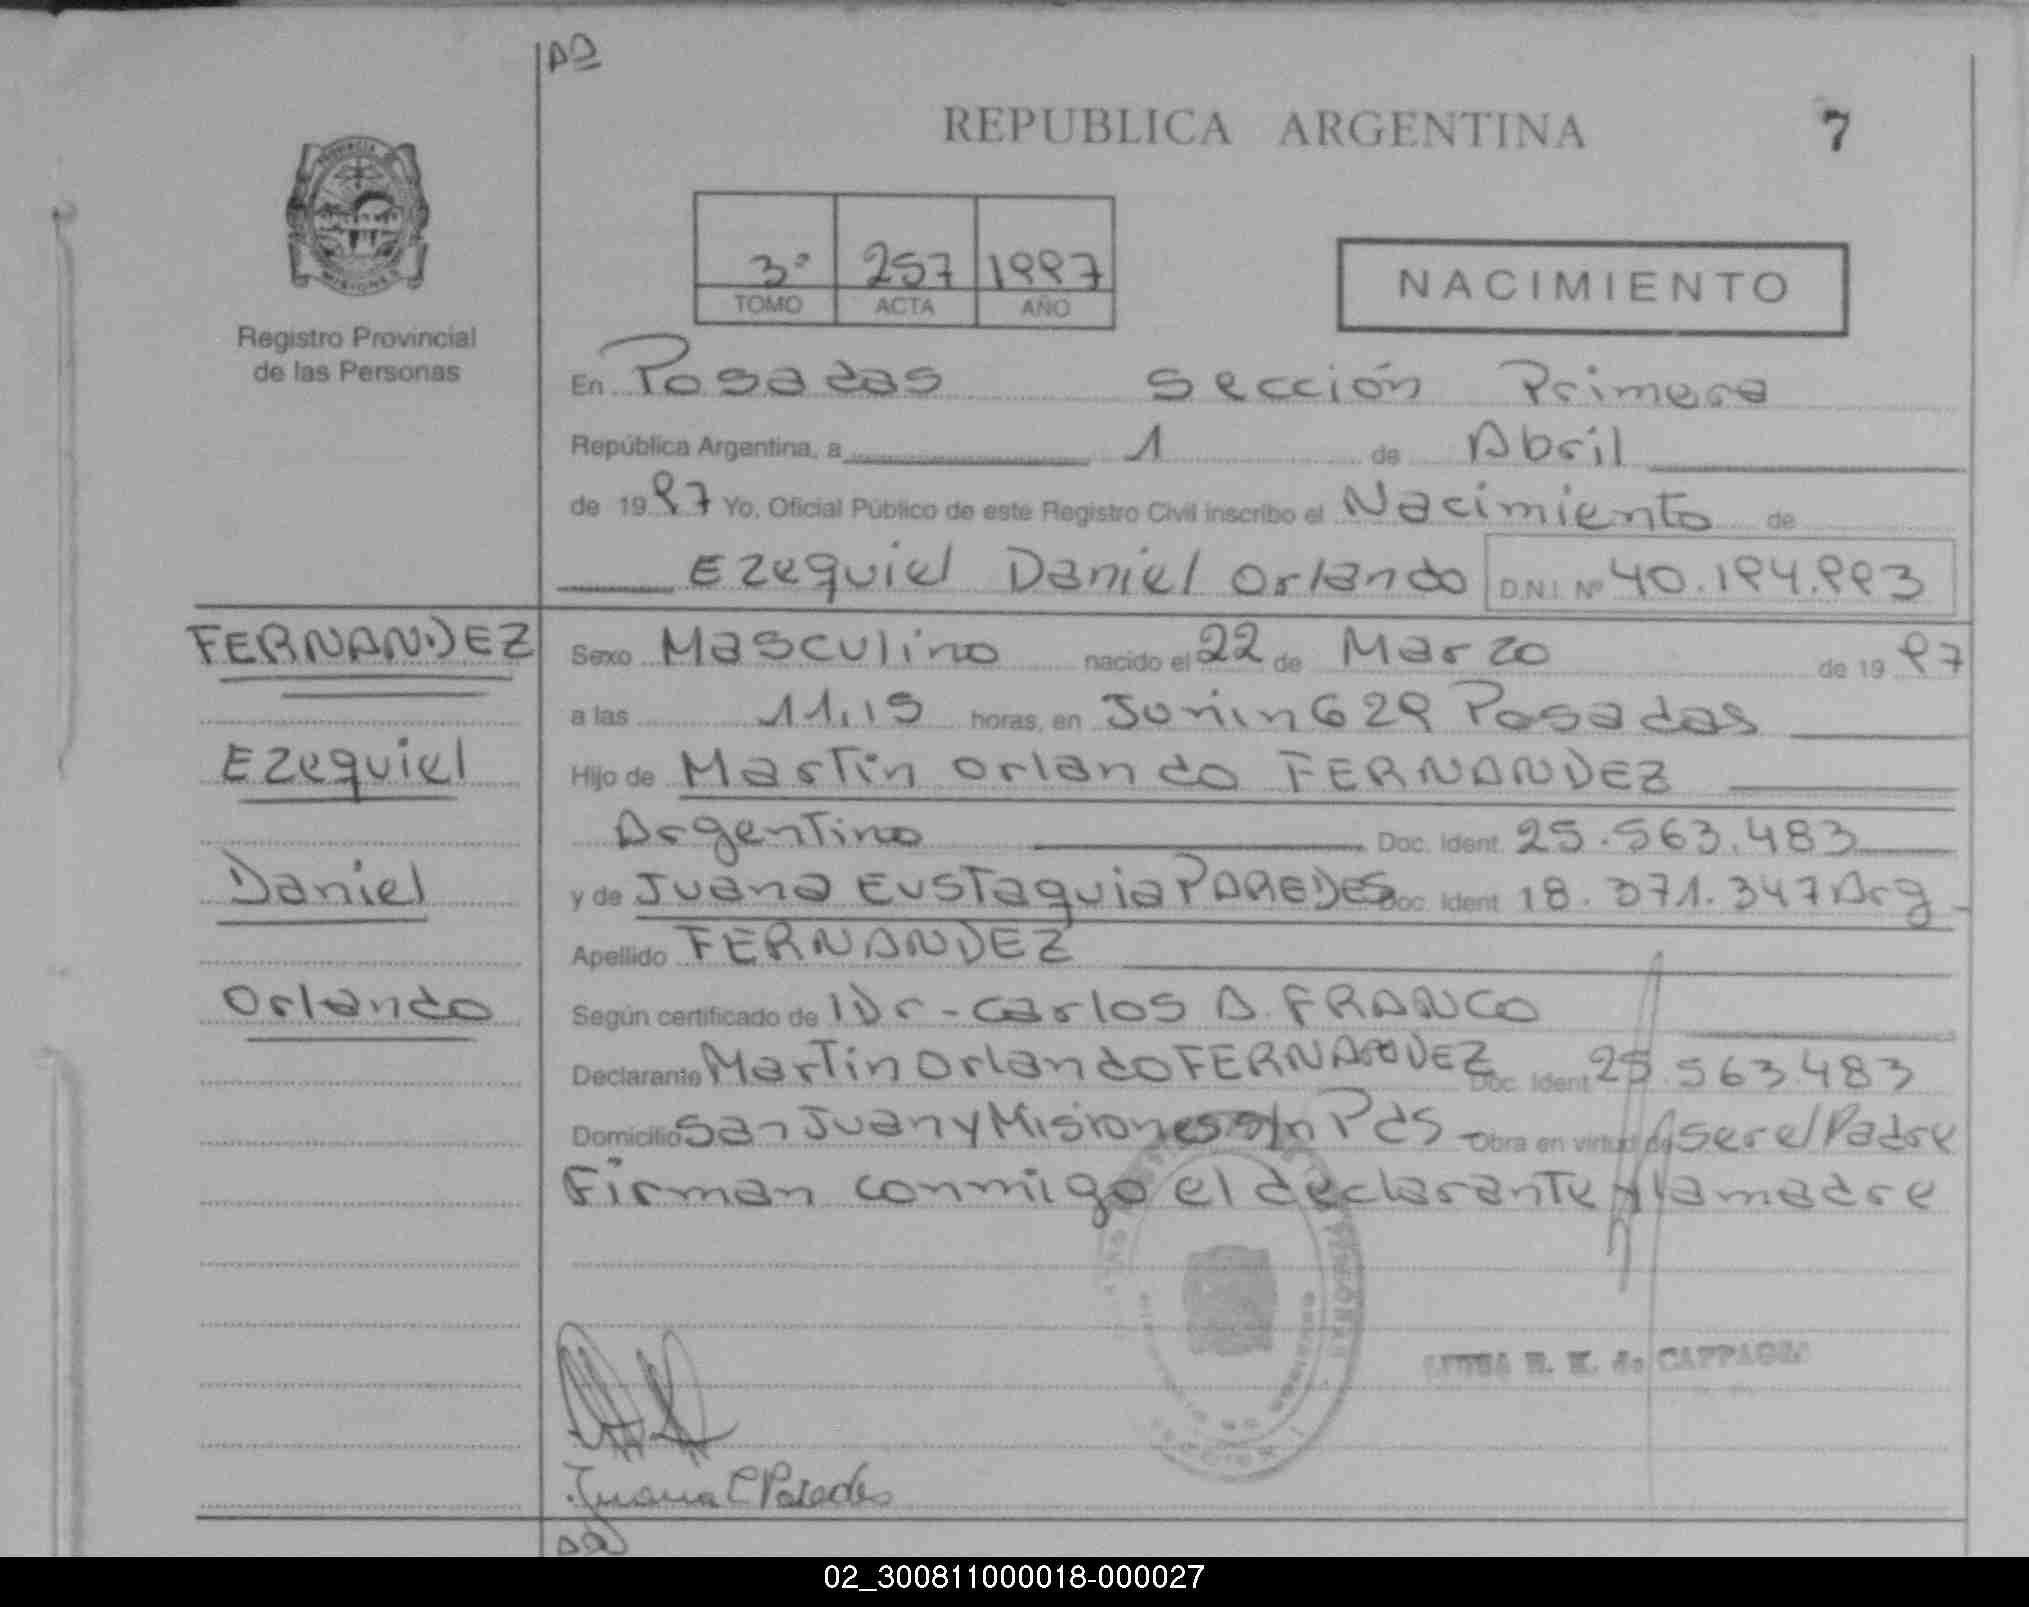 REPUBLICA ARGENTINA
7
PROVINCIA DE
MISIONES
Registro Provincial
de las Personas
3º 257 1997
TOMO ACTA AÑO
NACIMIENTO
En Posadas Sección Primera
República Argentina, a 1 de Abril
de 1997 Yo, Oficial Público de este Registro Civil inscribo el Nacimiento de
Ezequiel Daniel Orlando D.N.I. Nº 40.194.993
FERNANDEZ
Ezequiel
Daniel
Orlando
Sexo Masculino nacido el 22 de Marzo de 1997
a las 11,15 horas, en Junin 629 Posadas
Hijo de Martin Orlando FERNANDEZ
Argentino Doc. Ident. 25.563.483
y de Juana Eustaquia PAREDES Doc. Ident. 18.371.347 Arg
Apellido FERNANDEZ
Según certificado de Dr-Carlos A. FRANCO
Declarante Martin Orlando FERNANDEZ Doc. Ident. 25.563.483
Domicilio San Juan y Misiones s/n Pds Obra en virtud de ser el Padre
Firman conmigo el declarante y la madre
de CAPPAGLI
Juana E Paredes
02_300811000018-000027